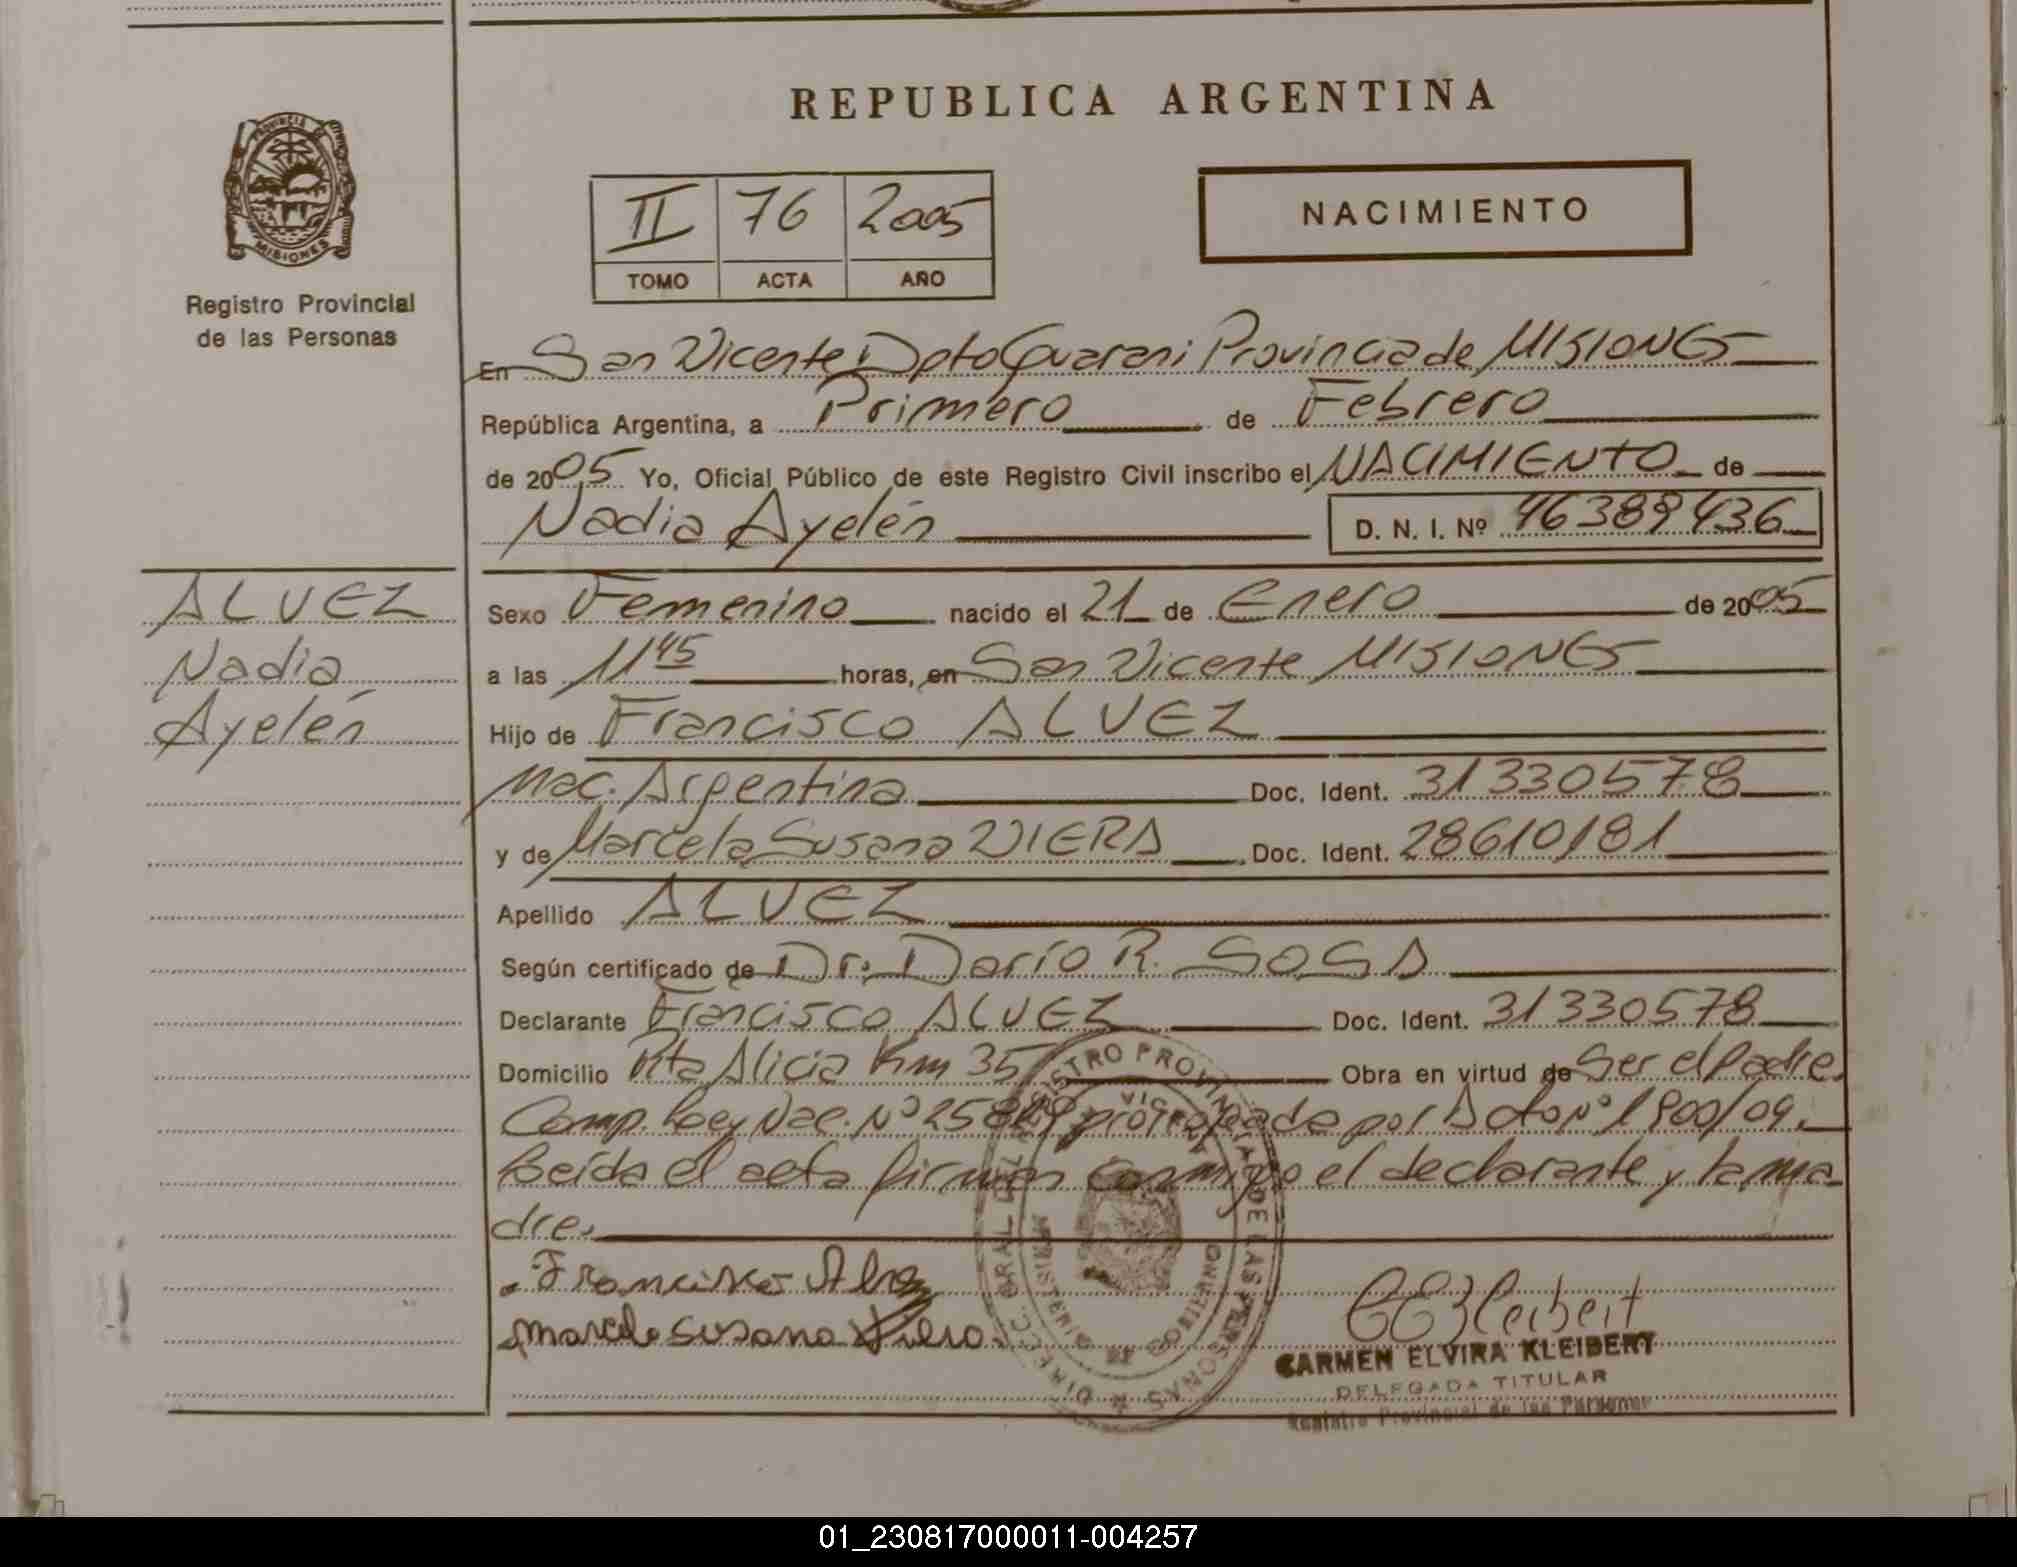 REPUBLICA ARGENTINA
PROVINCIA DE
MISIONES
Registro Provincial
de las Personas
II 76 2005
TOMO ACTA AÑO
NACIMIENTO
En San Vicente Dpto Guarani Provincia de MISIONES
República Argentina, a Primero de Febrero
de 2005 Yo, Oficial Público de este Registro Civil inscribo el NACIMIENTO de
Nadia Ayelén D. N. I. Nº 46389436
ALVEZ
Nadia
Ayelén
Sexo Femenino nacido el 21 de Enero de 2005
a las 11 45 horas, en San Vicente MISIONES
Hijo de Francisco ALVEZ
Nac. Argentina Doc. Ident. 31330578
y de Marcela Susana VIERA Doc. Ident. 28610181
Apellido ALVEZ
Según certificado de Dr. Darío R. SOSA
Declarante Francisco ALVEZ Doc. Ident. 31330578
Domicilio Pta Alicia Km 35 Obra en virtud de Ser el Padre
Comp. Ley Nac. Nº por Dcto Nº 1900/04.
Leída el acta firman conmigo el declarante y la ma-
dre.
Francisco Alvez
marcela susana Viera
CARMEN ELVIRA KLEIBERT
DELEGADA TITULAR
Registro Provincial de las Personas
DIRECC. GRAL DEL REGISTRO PROVINCIAL DE LAS PERSONAS
MINISTERIO DE GOBIERNO
01_230817000011-004257